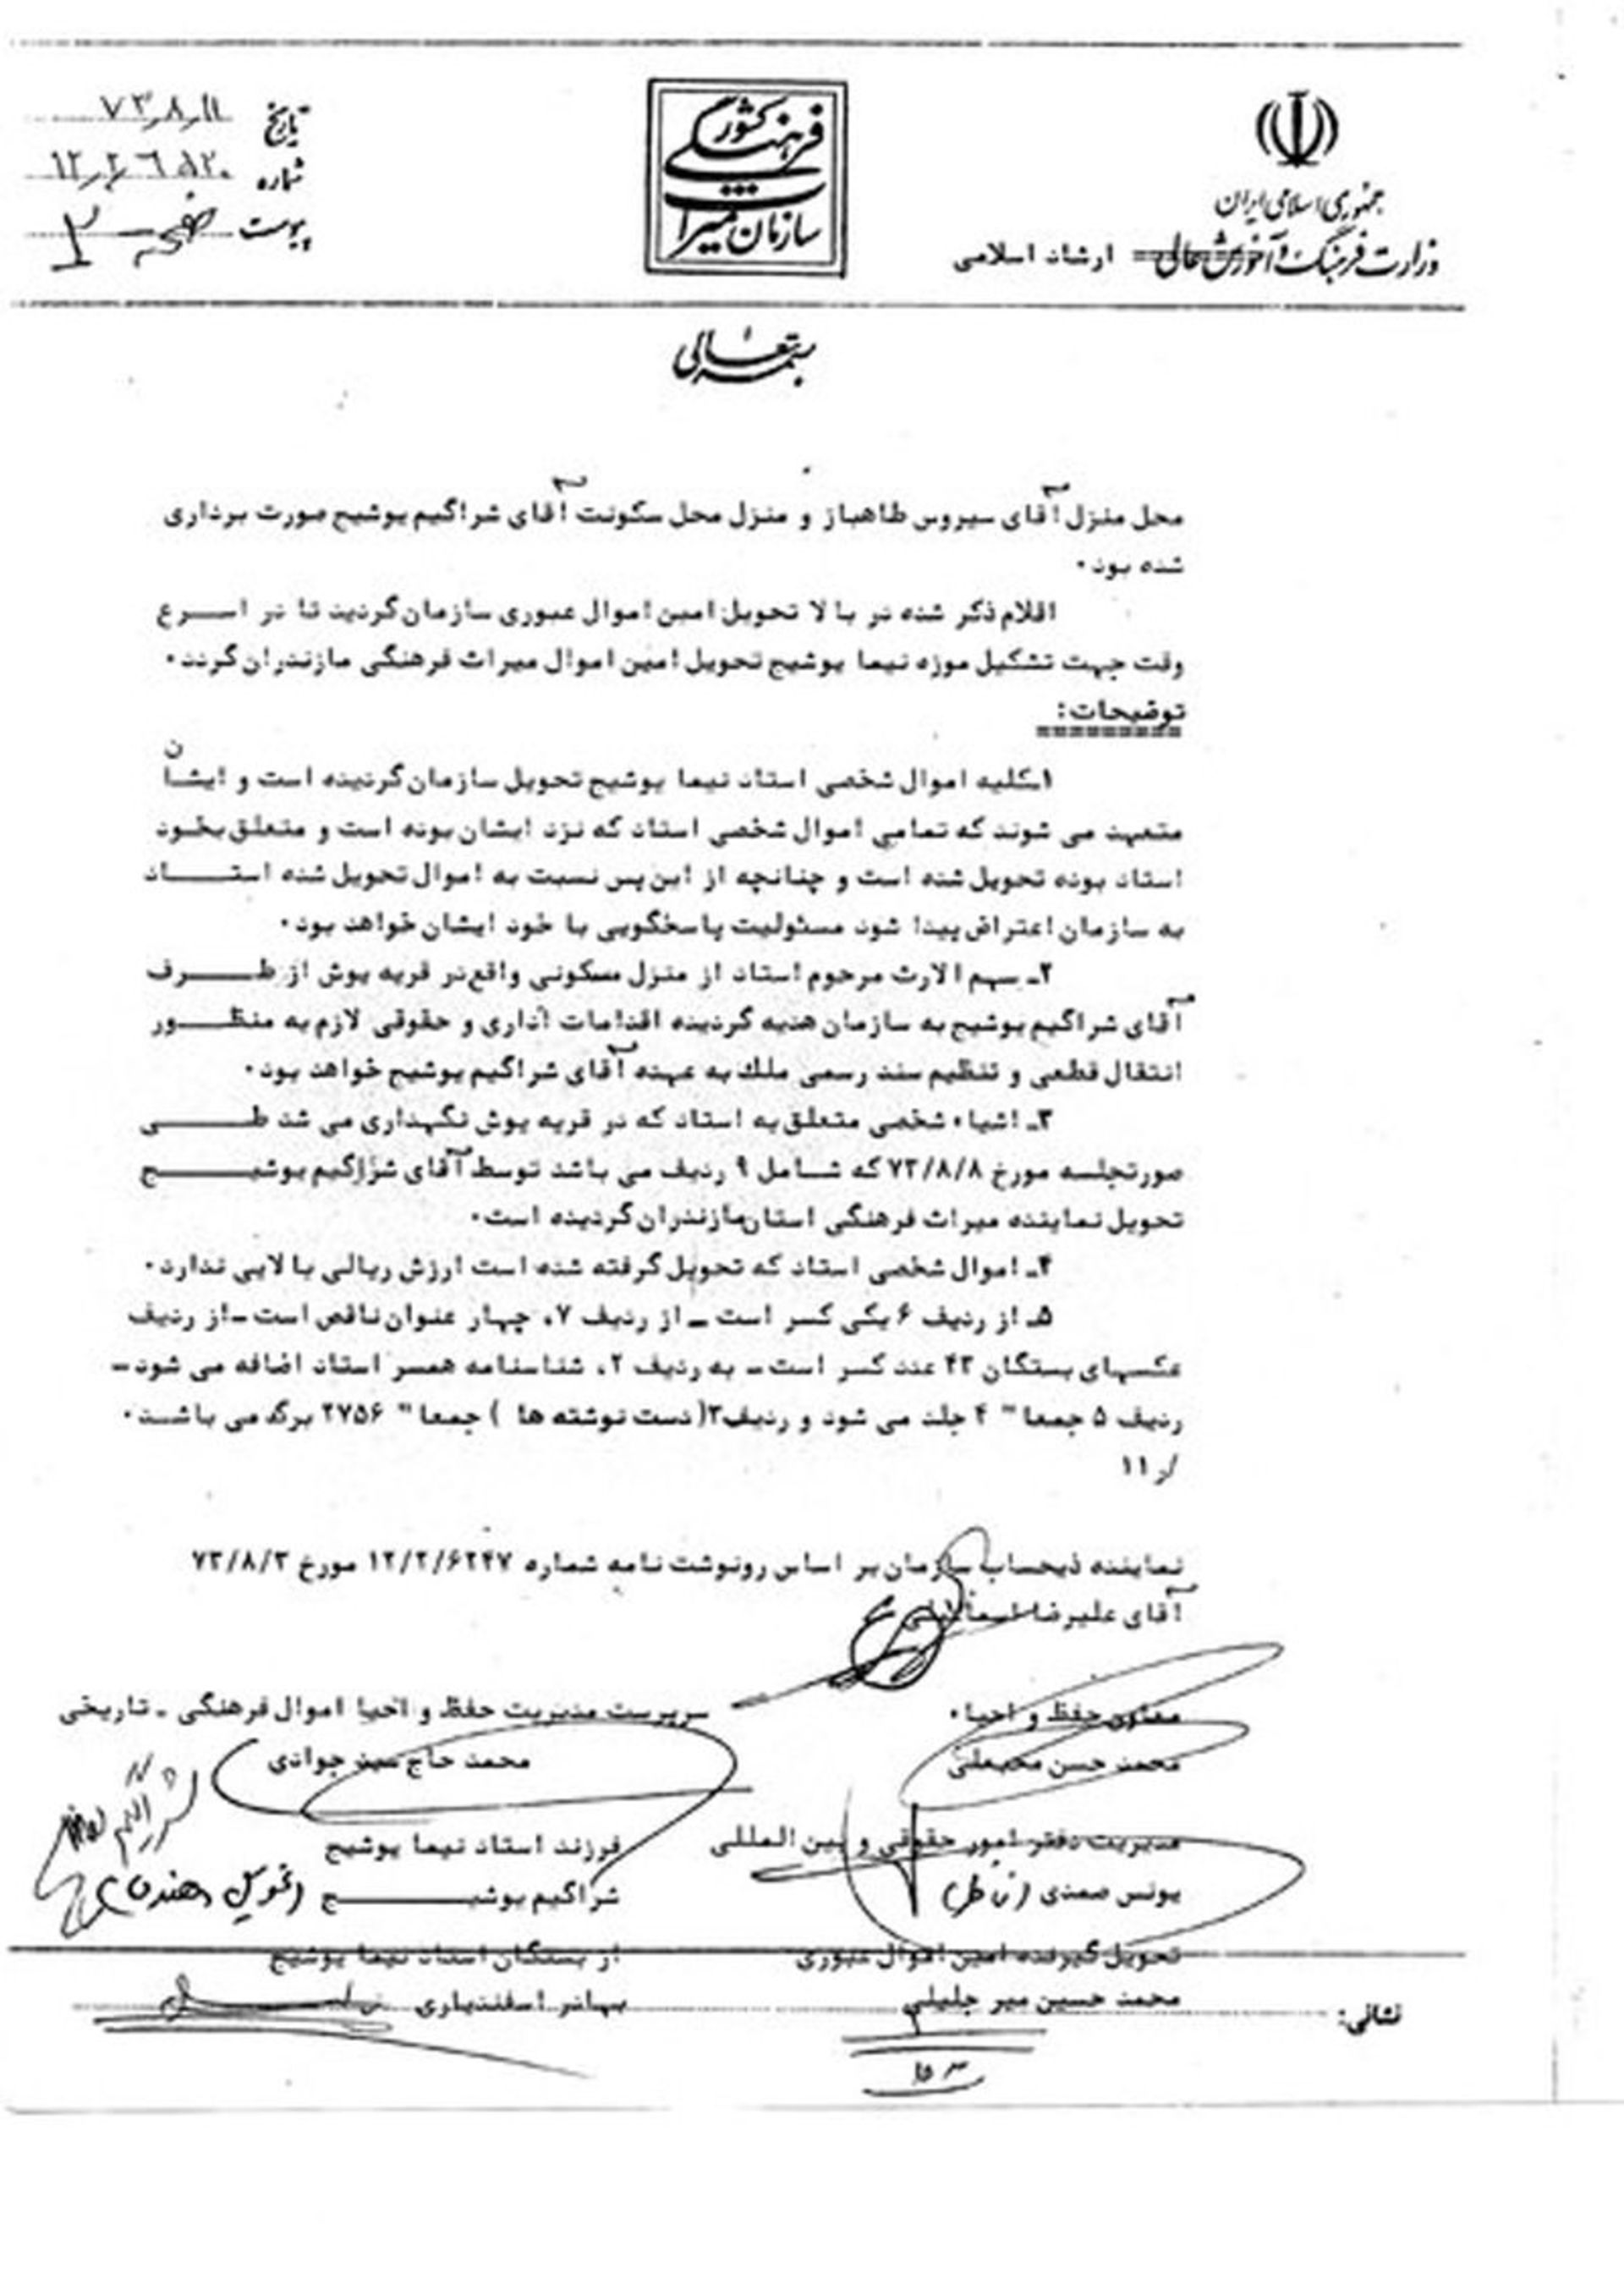 جمهوری اسلامی ایران
وزارت فرهنگ و آموزش عالی ارشاد اسلامی
سازمان میراث فرهنگی کشور
تاریخ ۷۳٫۸٫۱۱
شماره ۱۲٫۲٫۶۵۲۰
پیوست صفحه ۲
بسمه تعالی
محل منزل آقای سیروس طاهباز و منزل محل سکونت آقای شراگیم یوشیج صورت برداری
شده بود.
اقلام ذکر شده در بالا تحویل امین اموال عبوری سازمان گردید تا در اسرع
وقت جهت تشکیل موزه نیما یوشیج تحویل امین اموال میراث فرهنگی مازندران گردد.
توضیحات:
۱ـ کلیه اموال شخصی استاد نیما یوشیج تحویل سازمان گردیده است و ایشان
متعهد می شوند که تمامی اموال شخصی استاد که نزد ایشان بوده است و متعلق بخود
استاد بوده تحویل شده است و چنانچه از این پس نسبت به اموال تحویل شده استاد
به سازمان اعتراض پیدا شود مسئولیت پاسخگویی با خود ایشان خواهد بود.
۲ـ سهم الارث مرحوم استاد از منزل مسکونی واقع در قریه یوش از طرف
آقای شراگیم یوشیج به سازمان هدیه گردیده اقدامات اداری و حقوقی لازم به منظور
انتقال قطعی و تنظیم سند رسمی ملک به عهده آقای شراگیم یوشیج خواهد بود.
۳ـ اشیاء شخصی متعلق به استاد که در قریه یوش نگهداری می شد طی
صورتجلسه مورخ ۷۳/۸/۸ که شامل ۹ ردیف می باشد توسط آقای شراگیم یوشیج
تحویل نماینده میراث فرهنگی استان مازندران گردیده است.
۴ـ اموال شخصی استاد که تحویل گرفته شده است ارزش ریالی بالایی ندارد.
۵ـ از ردیف ۶ یکی کسر است ـ از ردیف ۷، چهار عنوان ناقص است ـ از ردیف
عکسهای بستگان ۴۳ عدد کسر است ـ به ردیف ۲، شناسنامه همسر استاد اضافه می شود ـ
ردیف ۵ جمعا" ۴ جلد می شود و ردیف ۳ (دست نوشته ها ) جمعا" ۲۷۵۶ برگ می باشد.
۱۱
نماینده ذیحساب سازمان بر اساس رونوشت نامه شماره ۱۲/۲/۶۲۴۷ مورخ ۷۳/۸/۳
آقای علیرضا اسماعیلی
معاون حفظ و احیاء
محمد حسن محبعلی
سرپرست مدیریت حفظ و احیا اموال فرهنگی ـ تاریخی
محمد حاج سید جوادی
مدیریت دفتر امور حقوقی و بین المللی
یونس صمدی (ناظر)
فرزند استاد نیما یوشیج
شراگیم یوشیج (تحویل دهنده)
تحویل گیرنده امین اموال عبوری
محمد حسین میر جلیلی
از بستگان استاد نیما یوشیج
بهادر اسفندیاری
نشانی: